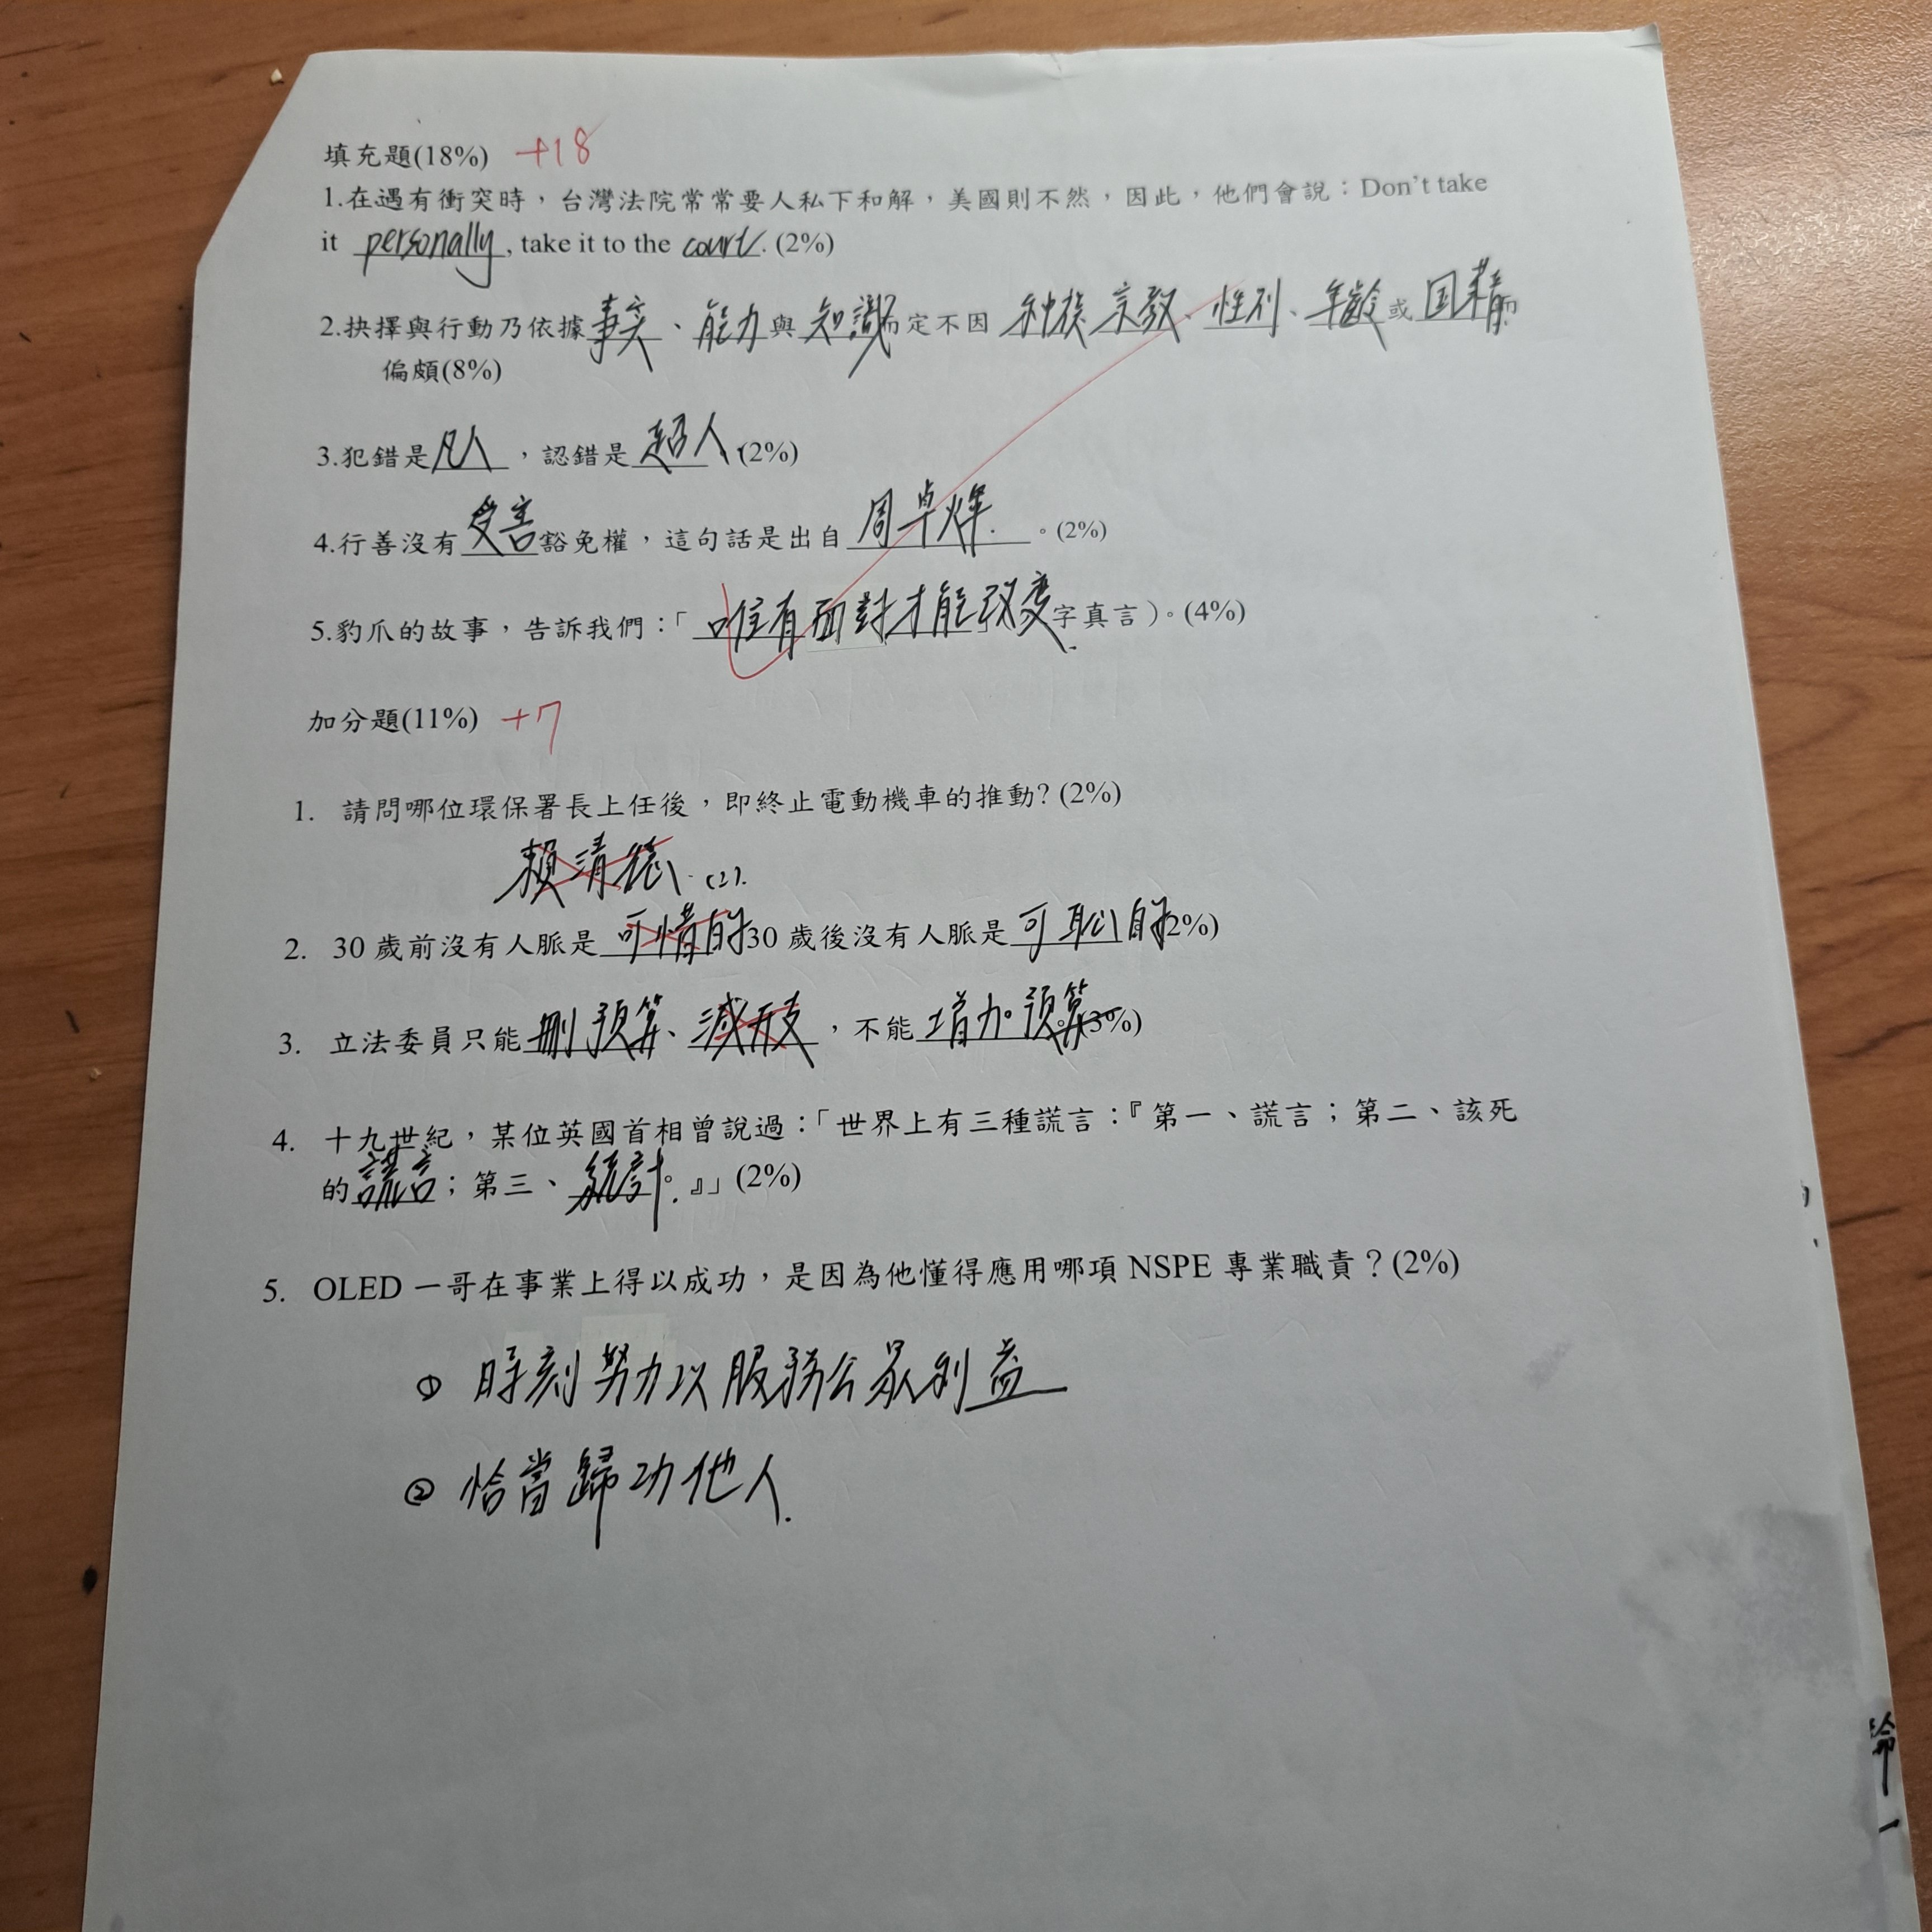 填充題(18%) +18
1.在遇有衝突時，台灣法院常常要人私下和解，美國則不然，因此，他們會說：Don't take
it personally, take it to the court. (2%)
2.抉擇與行動乃依據事实、能力與知識而定不因种族宗教、性别、年齡或国籍而
偏頗(8%)
3.犯錯是凡人，認錯是超人。(2%)
4.行善沒有受害豁免權，這句話是出自周卓煇。(2%)
5.豹爪的故事，告訴我們：「唯有面對才能改變字真言）。(4%)
加分題(11%) +7
1. 請問哪位環保署長上任後，即終止電動機車的推動? (2%)
賴清德 (2).
2. 30 歲前沒有人脈是可惜的30 歲後沒有人脈是可恥的2%)
3. 立法委員只能刪預算、減，不能增加預算。(3%)
4. 十九世紀，某位英國首相曾說過：「世界上有三種謊言：『第一、謊言；第二、該死
的謊言；第三、統計。』」(2%)
5. OLED 一哥在事業上得以成功，是因為他懂得應用哪項 NSPE 專業職責？(2%)
① 時刻努力以服務公眾利益
② 恰當歸功他人.